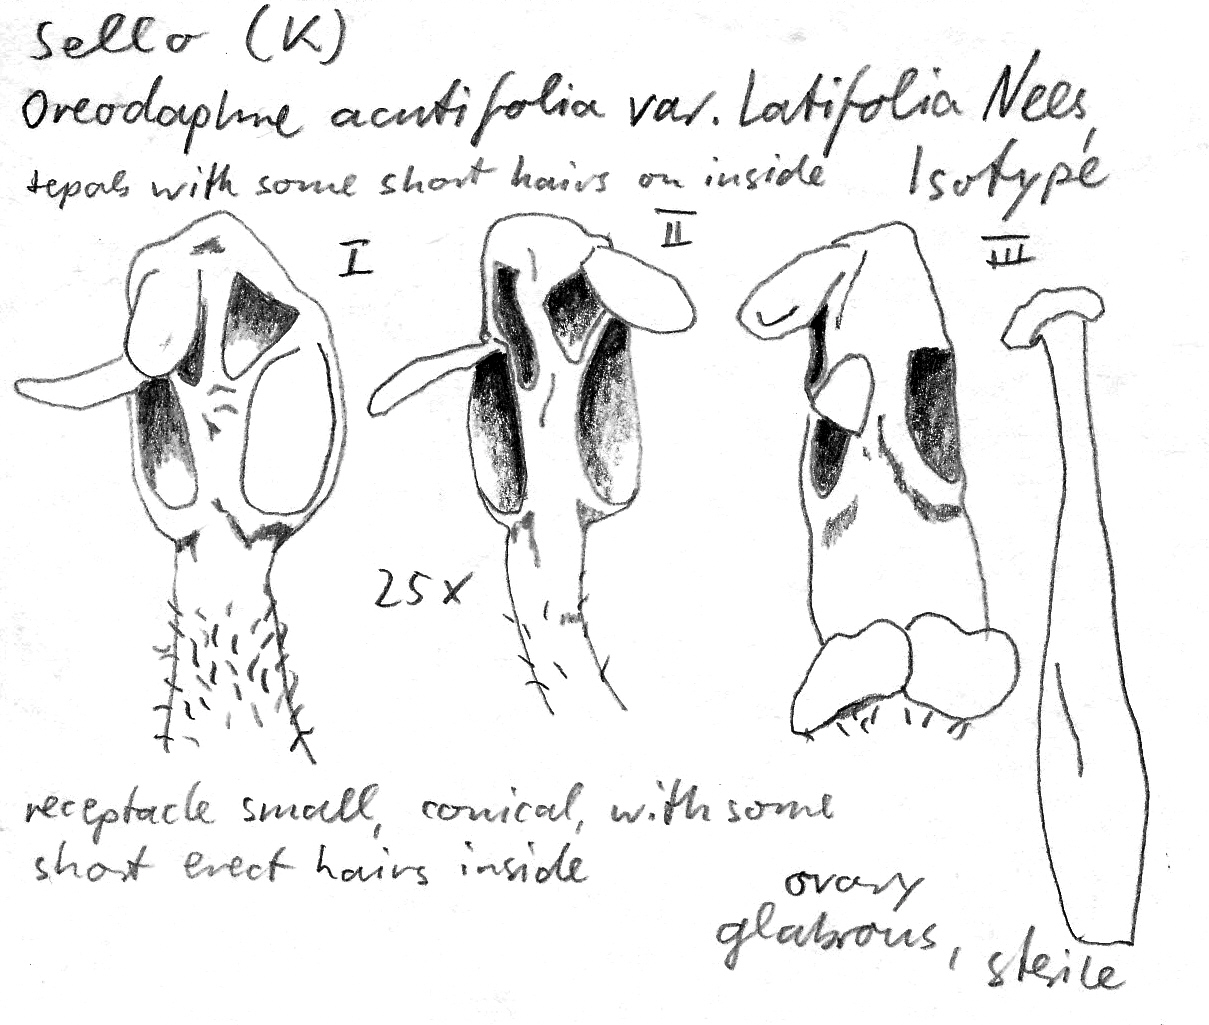 Sello (K)
Oreodaphne acutifolia var. Latifolia Nees,
tepals with some short hairs on inside Isotype
I
II
III
25 x
receptacle small, conical, with some
short erect hairs inside
ovary
glabrous, sterile